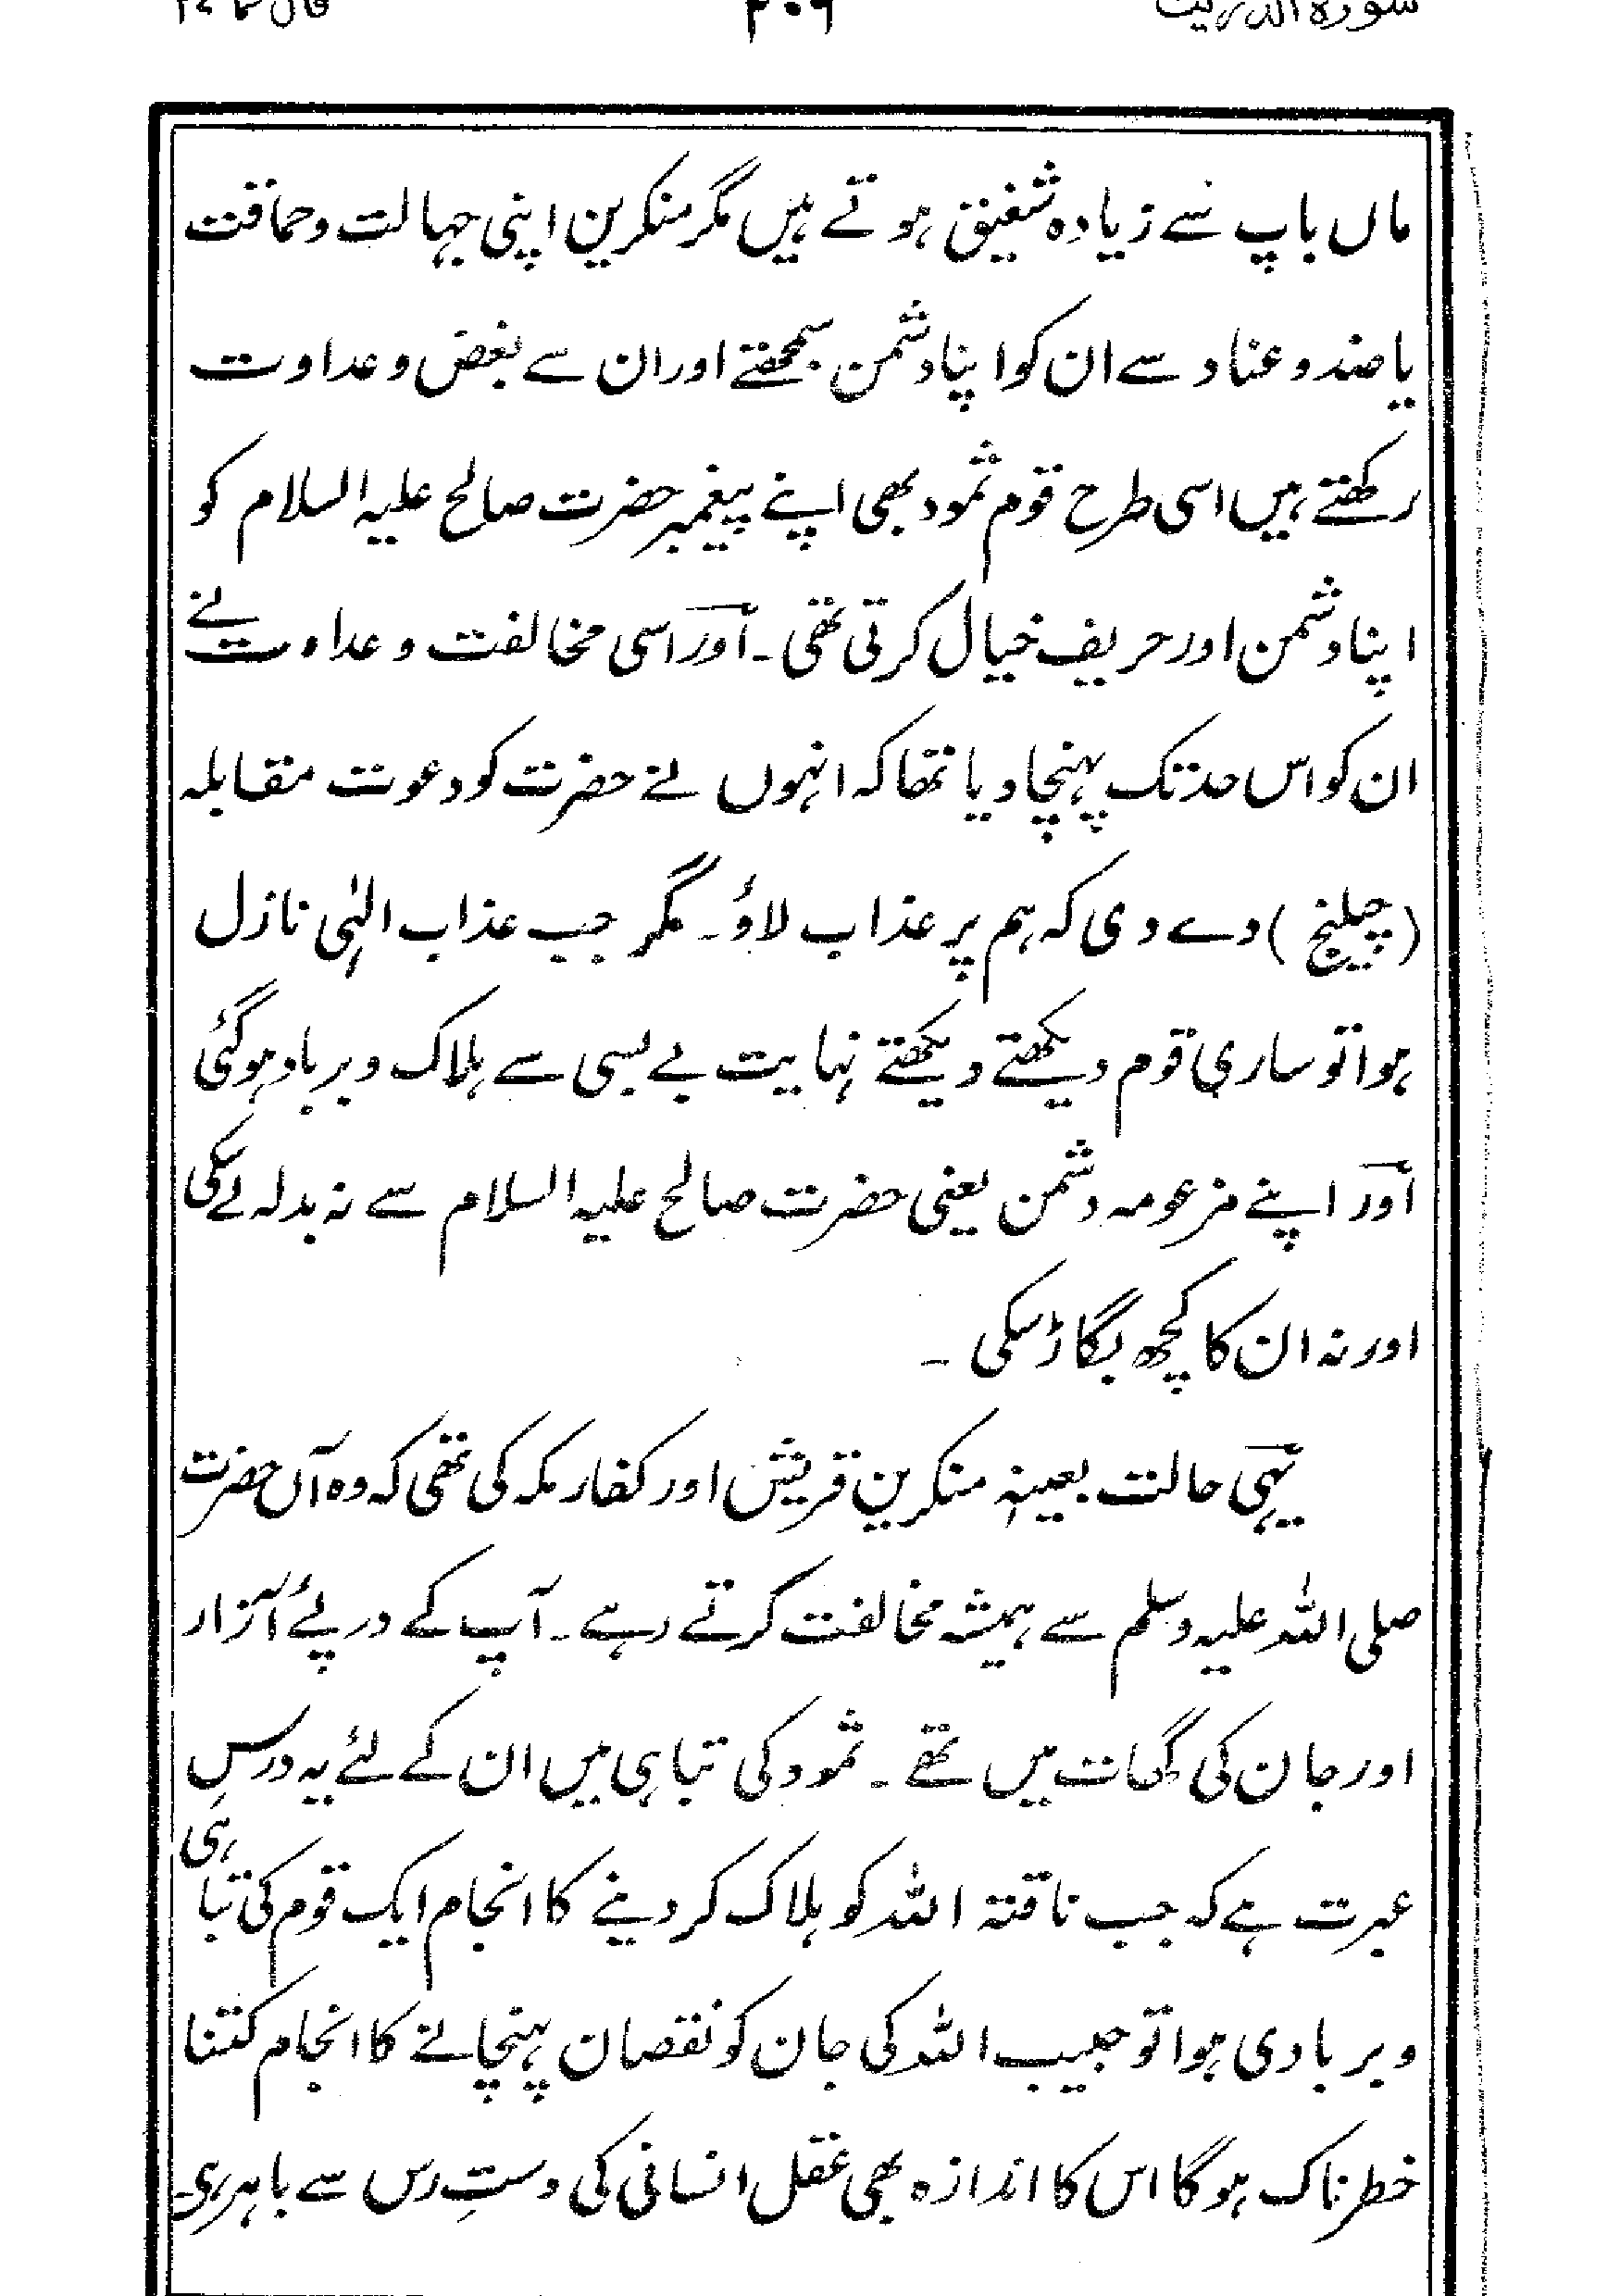 سورہ الذریت ۲۰۶ قال فما ۲۷
ماں باپ سے زیادہ شفیق ہوتے ہیں مگر منکرین اپنی جہالت و حماقت
یا ضد و عناد سے ان کو اپنا دشمن سمجھتے اور ان سے بغض و عداوت
رکھتے ہیں اسی طرح قوم ثمود بھی اپنے پیغمبر حضرت صالح علیہ السلام کو
اپنا دشمن اور حریف خیال کرتی تھی ۔ اور اسی مخالفت و عداوت نے
ان کو اس حد تک پہنچا دیا تھا کہ انہوں نے حضرت کو دعوت مقابلہ
(چیلنج) دے دی کہ ہم پر عذاب لاؤ۔ مگر جب عذاب الہٰی نازل
ہوا تو ساری قوم دیکھتے دیکھتے نہایت بے بسی سے ہلاک و برباد ہوگئی
اور اپنے مزعومہ دشمن یعنی حضرت صالح علیہ السلام سے نہ بدلہ لے سکی
اور نہ ان کا کچھ بگاڑ سکی ۔
یہی حالت بعینہٖ منکرین قریش اور کفار مکہ کی تھی کہ وہ آں حضرت
صلی اللہ علیہ وسلم سے ہمیشہ مخالفت کرتے رہے ۔ آپ کے درپئے آزار
اور جان کی گھات میں تھے ۔ ثمود کی تباہی میں ان کے لئے یہ درسِ
عبرت ہے کہ جب ناقتہ اللہ کو ہلاک کر دینے کا انجام ایک قوم کی تباہی
و بربادی ہوا تو حبیب اللہ کی جان کو نقصان پہنچانے کا انجام کتنا
خطرناک ہوگا اس کا اندازہ بھی عقل انسانی کی دستِ رس سے باہر ہی